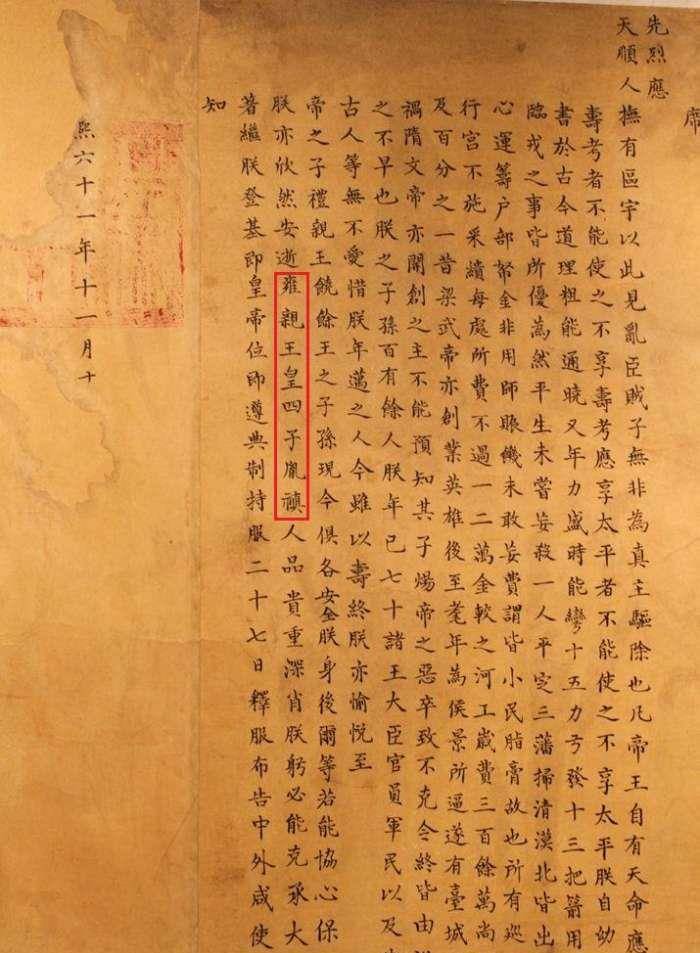 席
先烈應
天順人撫有區宇以此見亂臣賊子無非為真主驅除也凡帝王自有天命應
壽考者不能使之不享壽考應享太平者不能使之不享太平朕自幼
書於古今道理粗能通曉又年力盛時能彎十五力弓發十三把箭用
臨戎之事皆所優為然平生未嘗妄殺一人平定三藩掃清漠北皆出
心運籌户部帑金非用師賑饑未敢妄費謂皆小民脂膏故也所有巡
行宮不施采繢每處所費不過一二萬金較之河工歲費三百餘萬尚
及百分之一昔梁武帝亦創業英雄後至耄年為侯景所逼遂有臺城
禍隋文帝亦開創之主不能預知其子煬帝之惡卒致不克令終皆由
之不早也朕之子孫百有餘人朕年已七十諸王大臣官員軍民以及
古人等無不愛惜朕年邁之人今雖以壽終朕亦愉悅至
帝之子禮親王饒餘王之子孫現今俱各安全朕身後爾等若能協心保
朕亦欣然安逝雍親王皇四子胤禛人品貴重深肖朕躬必能克承大
著繼朕登基即皇帝位即遵典制持服二十七日釋服布告中外咸使
知
熙六十一年十一月十